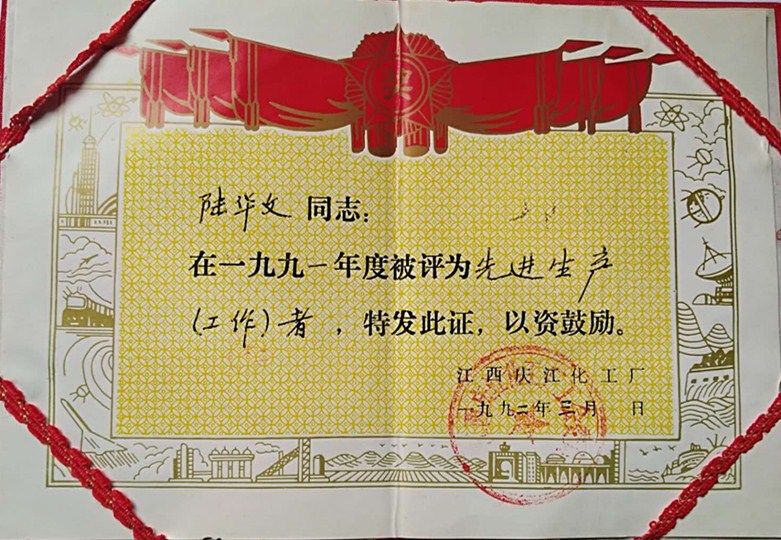 奖
陆华文同志：
在一九九一年度被评为先进生产
（工作）者，特发此证，以资鼓励。
江西庆江化工厂
一九九二年三月 日